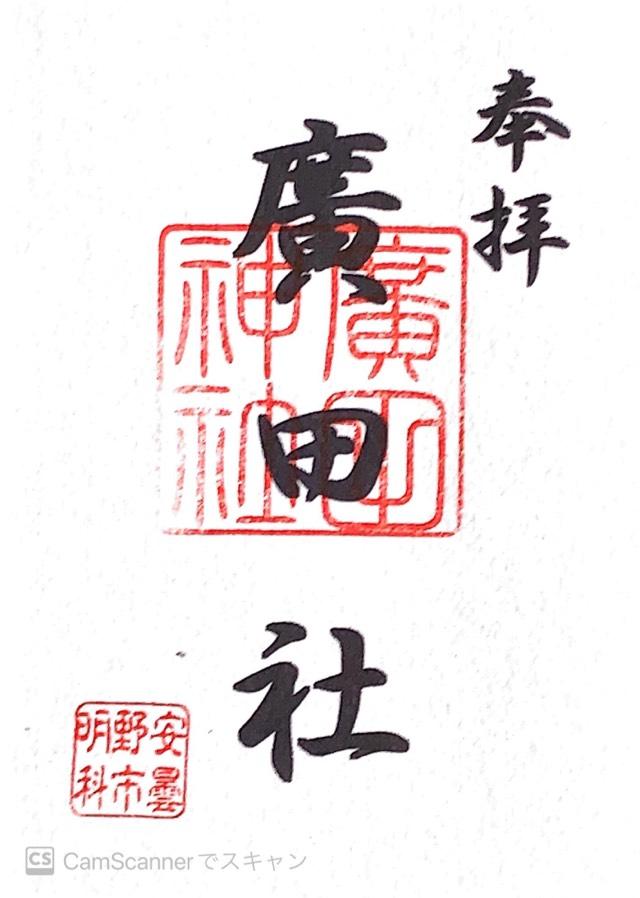 奉拝
廣田社
廣田
神社
安曇
野市
明科
CS CamScannerでスキャン